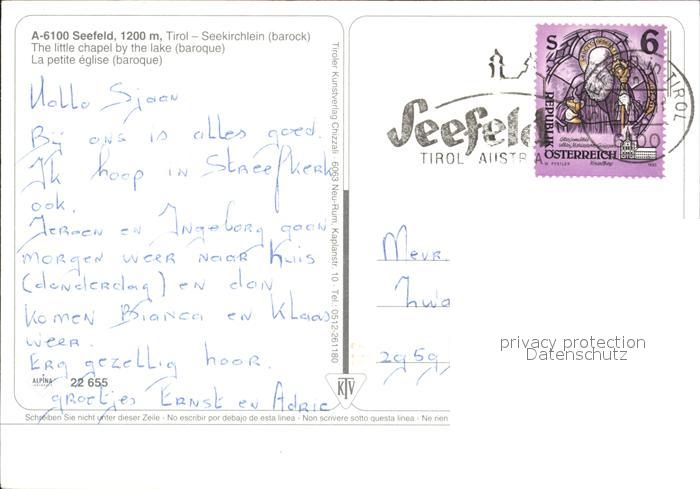 A-6100 Seefeld, 1200 m, Tirol – Seekirchlein (barock)
The little chapel by the lake (baroque)
La petite église (baroque)
Hallo Sjaan
Bij ons is alles goed.
Ik hoop in Streefkerk
ook.
Jeroen en Ingeborg gaan
morgen weer naar huis
(donderdag) en dan
komen Bianca en Klaas
weer.
Erg gezellig hoor.
groetjes Ernst en Adrie
ALPINA
22 655
Tiroler Kunstverlag Chizzali · 6063 Neu-Rum, Kaplanstr. 10 · Tel. 0512-261180
KTV
Schreiben Sie nicht unter dieser Zeile - No escribir por debajo de esta linea - Non scrivere sotto questa linea - Ne rien
Seefeld
TIROL AUSTRIA
TIROL
S 6
REPUBLIK
ÖSTERREICH
1993
Mevr.
Zwa
2959
privacy protection
Datenschutz